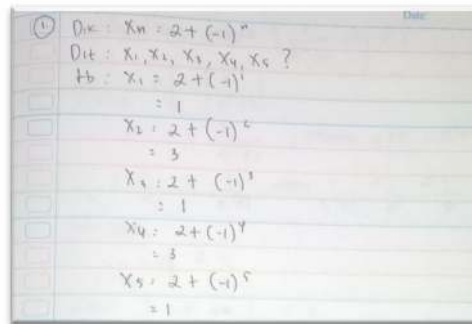 Date:
① Dik : Xn = 2 + (-1)ⁿ
Dit : X₁, X₂, X₃, X₄, X₅ ?
Jb : X₁ = 2 + (-1)¹
= 1
X₂ = 2 + (-1)²
= 3
X₃ = 2 + (-1)³
= 1
X₄ = 2 + (-1)⁴
= 3
X₅ = 2 + (-1)⁵
= 1